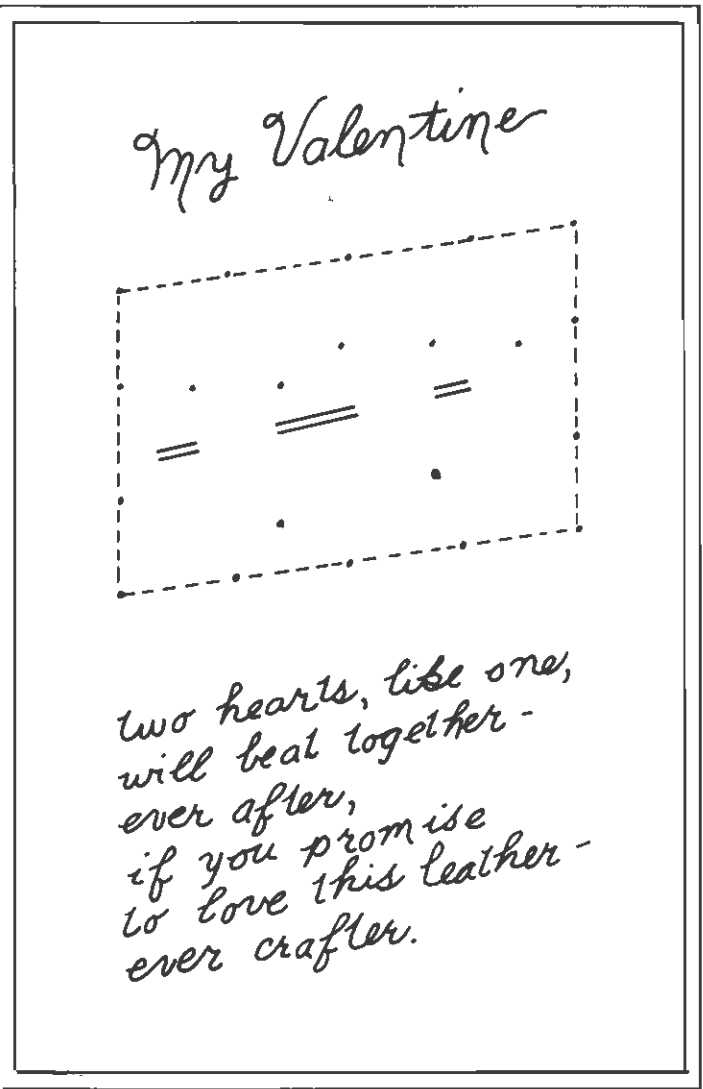 My Valentine
two hearts, like one,
will beat together -
ever after,
if you promise
to love this leather -
ever crafter.